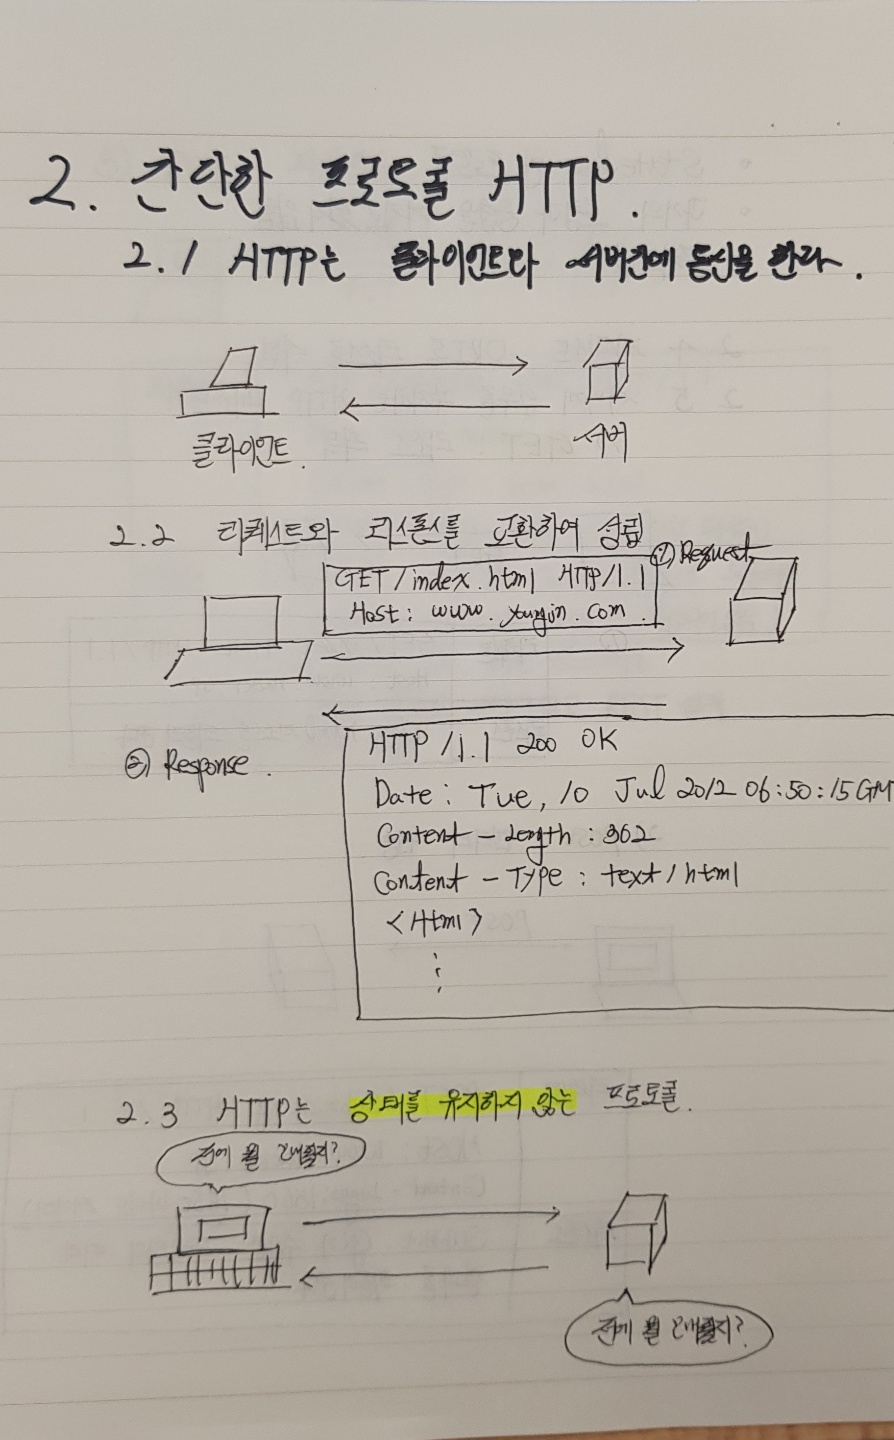 2. 간단한 프로토콜 HTTP.
2.1 HTTP는 클라이언트와 서버간에 통신을 한다.
클라이언트.
서버
2.2 리퀘스트와 리스폰스를 교환하여 성립
① Request
GET /index.html HTTP/1.1
Host: www.yungjin.com.
② Response.
HTTP/1.1 200 OK
Date: Tue, 10 Jul 2012 06:50:15 GM
Content-Length: 362
Content-Type: text/html
<Html>
2.3 HTTP는 상태를 유지하지 않는 프로토콜.
전에 뭘 보냈지?
전에 뭘 보냈지?